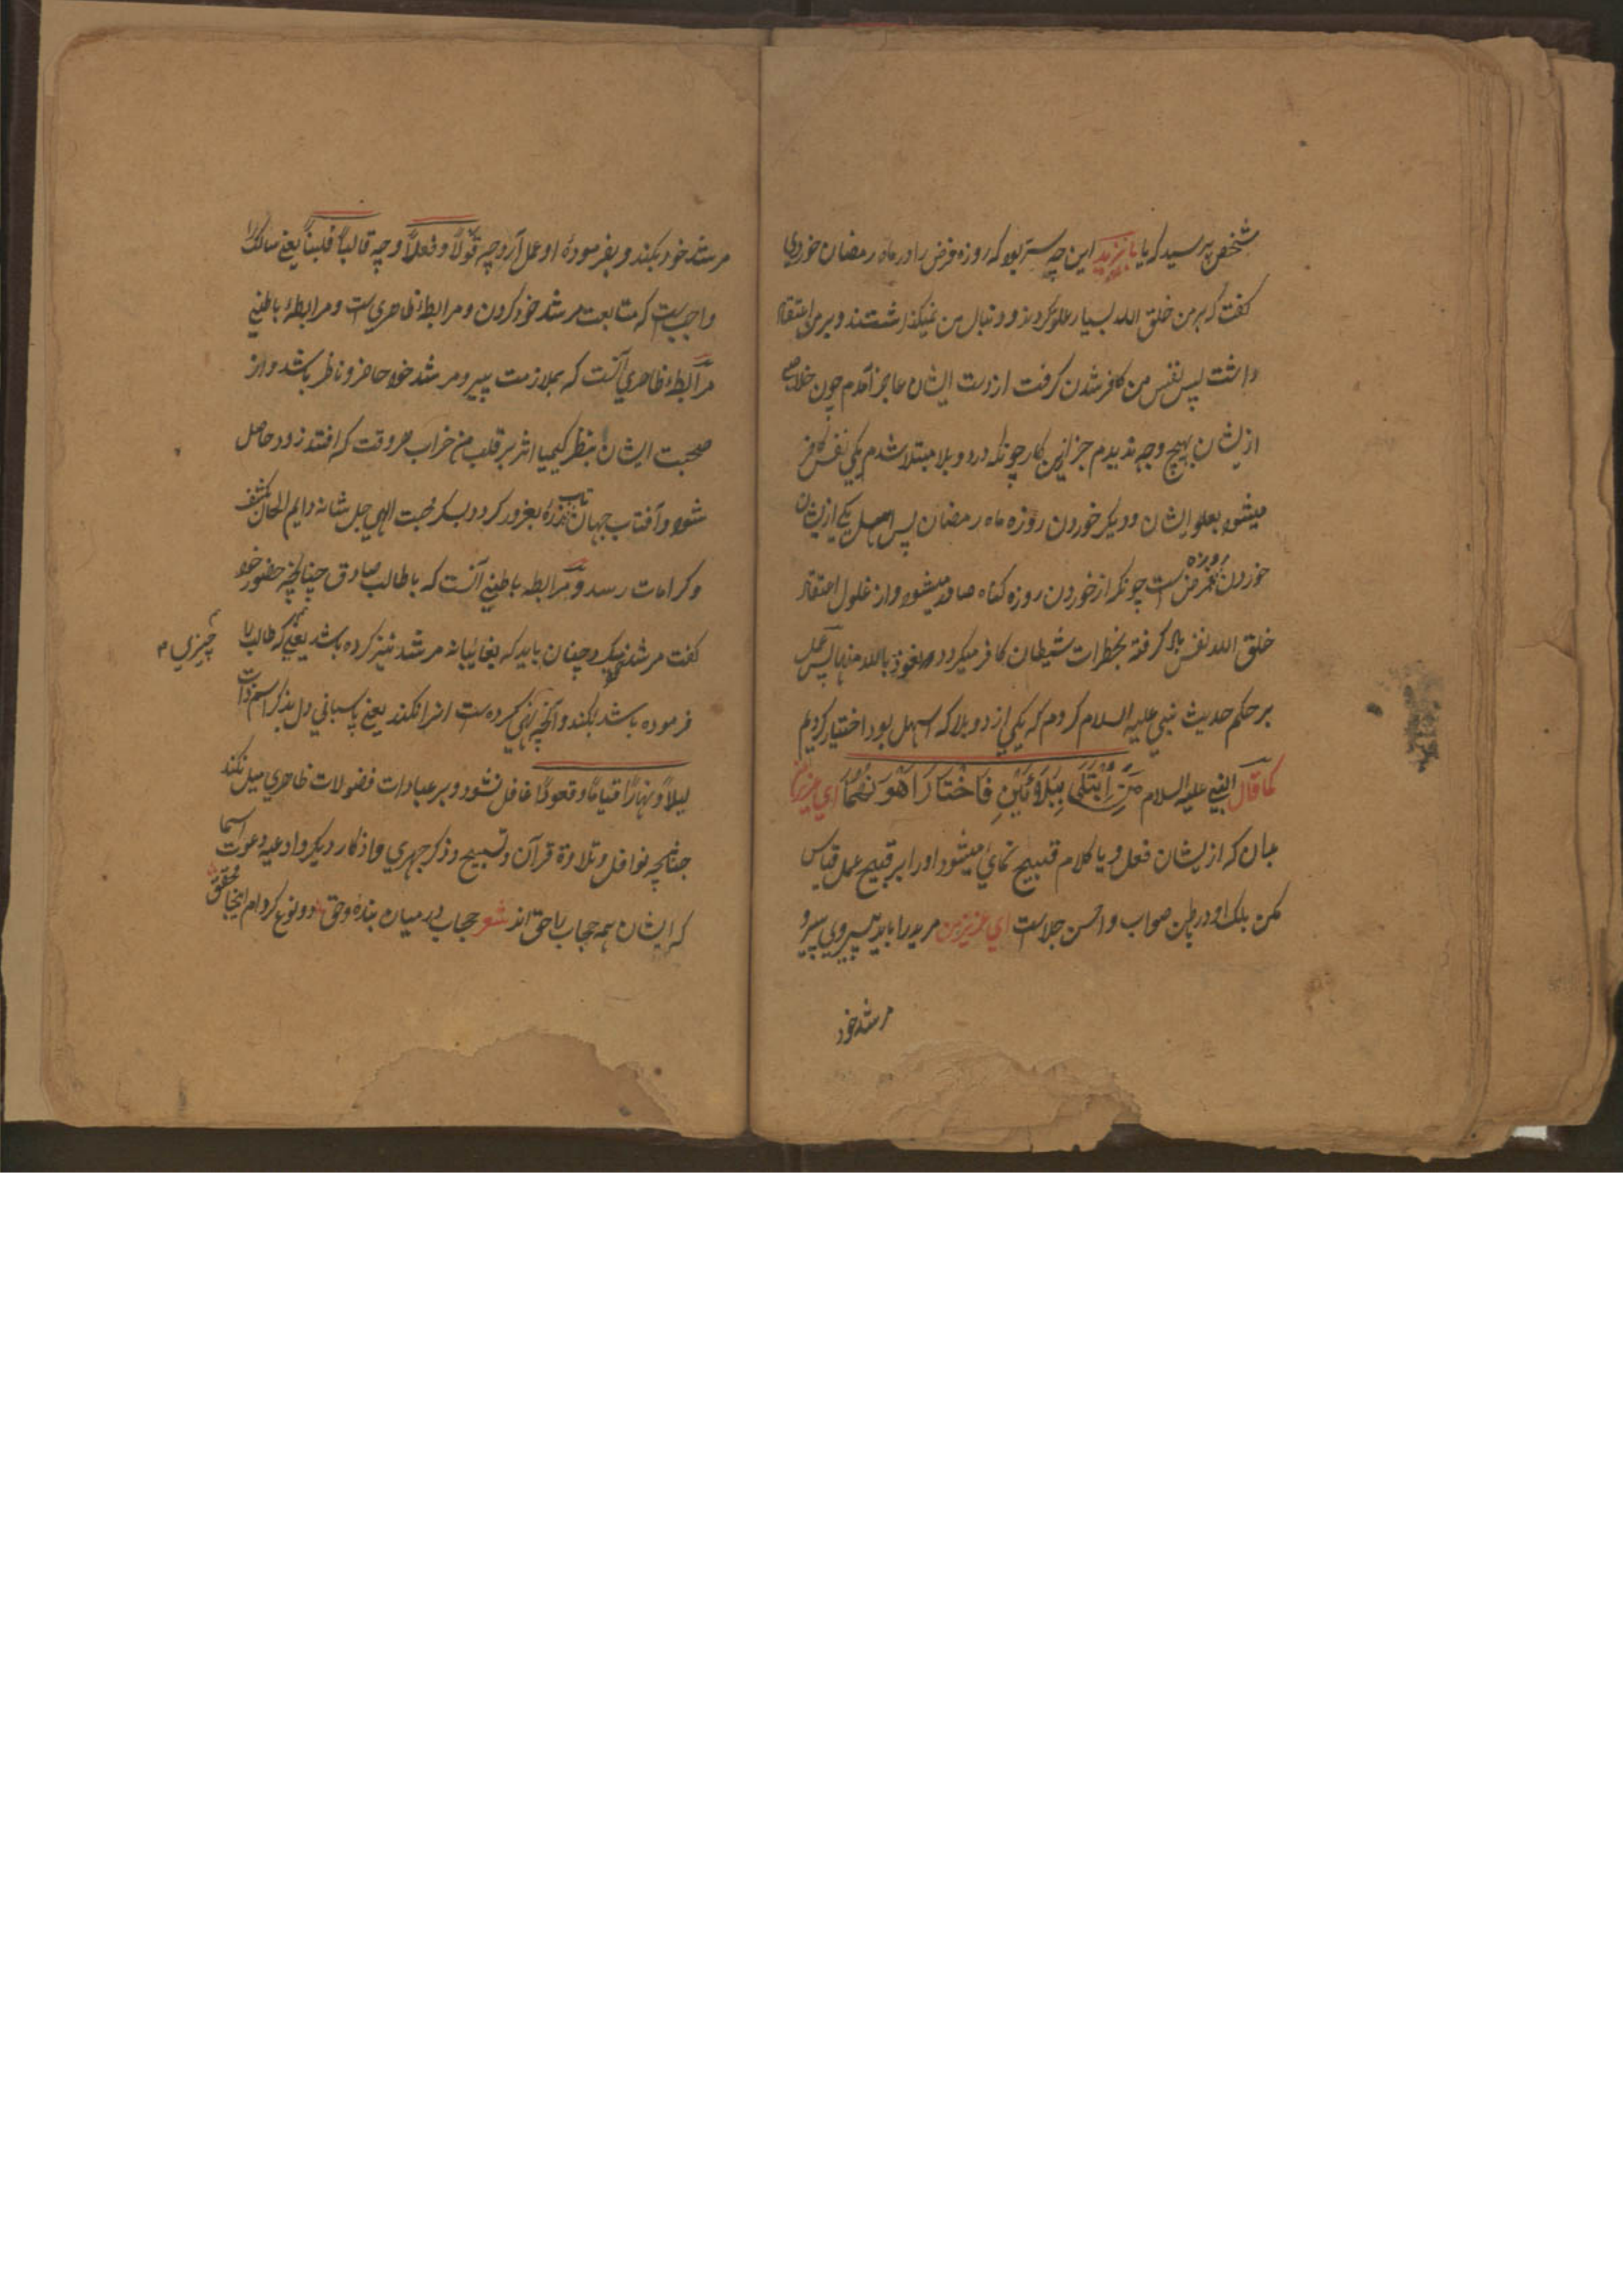 شخص پرسید که یا بایزید این چه ستر بود که روزه فرض را در ماه رمضان خوردی
گفت که بر من خلق الله بسیار غلو کردند و دنبال من نمیگذاشتند و بر من اعتقاد
داشت پس نفس من کافر شدن گرفت از دست ایشان عاجز آمدم چون خلاصی
ازیشان بهیچ وجه ندیدم جز این کار چونکه در دو بلا مبتلا شدم یکی نفس کافر
میشود بغلو ایشان و دیگر خوردن روزه ماه رمضان پس اسهل یکی ازیشان
خوردن روزه فرض است چونکه از خوردن روزه گناه صادر میشود و از غلول اعتقاد
خلق الله نفس گرفته بخطرات شیطان کافر میگردد نعوذ بالله منها پس عمل
بر حکم حدیث نبی علیه السلام کردم که یکی از دو بلا که اسهل بود اختیار کردیم
کما قال النبی علیه السلام مَنِ ابْتَلَی بِبَلَائَیْنِ فَاخْتَارَ اَهْوَنَهُمَا ای عزیز من
بدان که ازیشان فعل و یا کلام قبیح نمای میشود او را بر قبیح عمل قیاس
مکن بلکه او در باطن صواب و احسن جلاست ای عزیز من مرید را باید پیروی پیر و
مرشد خود
مرشد خود بکند و بفرموده او عمل آرد چه قولاً و فعلاً و چه قالباً قلبناً یعنی سالک را
واجب است که متابعت مرشد خود کردن و مرابطهٔ ظاهری است و مرابطهٔ باطنی
مرابطهٔ ظاهری آنست که بملازمت پیر و مرشد خود حاضر و ناظر باشد و از
صحبت ایشان بنظر کیمیا اثر بر قلب من خراب هر وقت که افتد زود حاصل
شود و آفتاب جهان تاب ذره بغرور کردد بسکر محبت الهی جل شانه دایم الحان کشف
و کرامات رسد و مرابطه باطنی آنست که با طالب صادق چنانچه حضور خود
گفت مرشد میکرد چنان باید که بغایبانه مرشد نیز کرده باشد یعنی بهر چیزی که طالب را
فرموده باشد بکند و آنچه نهی کرده ست انرا نکند یعنی پاسبانی دل بذکر اسم ذات
لیلاً و نهاراً قیاماً و قعوداً غافل نشود و بر عبادات فضولات ظاهری میل نکند
چنانچه نوافل و تلاوة قرآن و تسبیح و ذکر جهری و اذکار دیگر و ادعیه و دعوت اسما
که ایشان همه حجاب با حق اند شعر حجاب در میان بنده و حق دو نوع کرده ام اینجا محقق